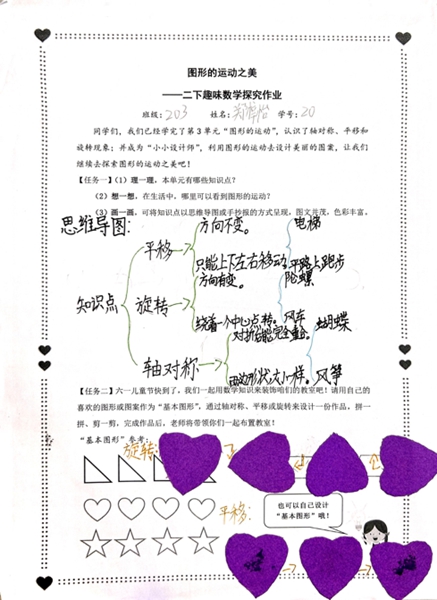 图形的运动之美
——二下趣味数学探究作业
班级：203 姓名： 学号：20
同学们，我们已经学完了第3单元“图形的运动”，认识了轴对称、平移和
旋转现象；并成为“小小设计师”，利用图形的运动去设计美丽的图案，让我们
继续去探索图形的运动之美吧！
【任务一】（1）理一理，本单元有哪些知识点？
（2）想一想，在生活中，哪里可以看到图形的运动？
（3）画一画，可将知识点以思维导图或手抄报的方式呈现，图文并茂，色彩丰富。
思维导图：
知识点
平移 方向不变。 电梯
只能上下左右移动 平路上跑步
旋转 方向有变。 陀螺
绕着一个中心点转。 风车
轴对称 对折后能完全重合。 蝴蝶
两边形状大小一样。 风筝
【任务二】六一儿童节快到了，我们一起用数学知识来装饰咱们的教室吧！请用自己的
喜欢的图形或图案作为“基本图形”，通过轴对称、平移或旋转来设计一份作品，拼一
拼、剪一剪，完成作品后，老师将带领你们一起布置教室！
“基本图形”参考：
旋转：
平移：
也可以自己设计
“基本图形”哦！